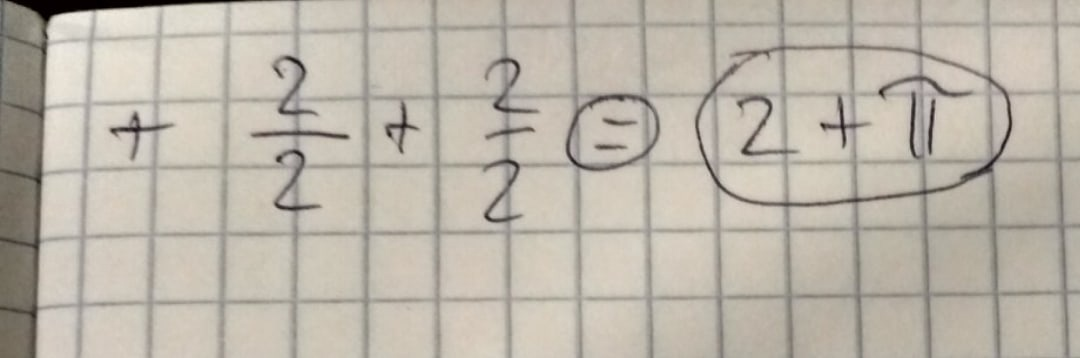 + 2/2 + 2/2 = 2 + π